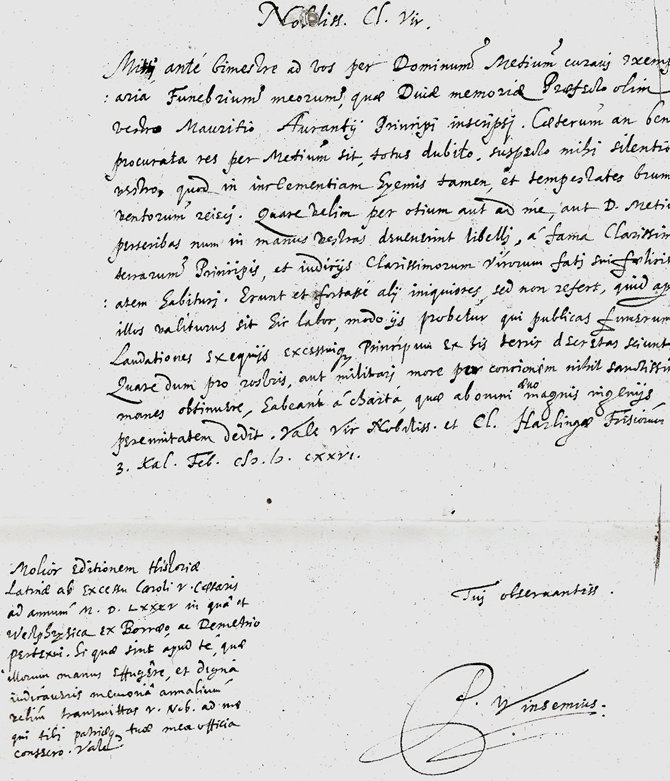 Nobliss. Cl. Vir.
Misi, anté bimestre ad vos per Dominum Metium curavi exemp
: aria Funebrium meorum, quæ Divæ memoriæ Præfecto olim
vestro Mauritio Aurantij Principi inscripsj. Cæterum an ben
procurata res per Metium sit, totus dubito, suspecto mihi silentio
vestro, quod in inclementiam hyemis tamen, et tempestates brum
ventorum reiecj. Quare velim per otium aut ad me, aut D. Metio
perscribas num in manus vestras devenerint libellj, á fama Clarissim
terrarum Principis, et iudicijs Clarissimorum Virorum fatj suj fælicit
: atem habiturj. Erunt et fortassé alij iniquiores, sed non refert, quid ap
illos valiturus sit hic labor, modo ijs probetur qui publicas funerum
Laudationes exequijs Principum ex his terris decretas sciunt
Quare dum pro rostris, aut militarj more per concionem nihil sanctissim
manes obtinuere, habeant á charta, quæ ab omni ævo magnis ingenijs
perennitatem dedit. Vale Vir Nobiliss. et Cl. Harlingæ Frisiorum
3. Kal. Feb. cIɔ. Iɔ. cxxvi.
Molior Editionem Historiæ
Latinæ ab Excessu Caroli V. Cæsaris
ad annum M. D. LXXXV in qua et
ex Borræo, ac Demetrio
pertexui. Si quæ sint apud te, quæ
illorum manus effugêre, et digna
memoria annalium
velim transmittas V. Nob. ad me
qui tibi patriæq tuæ mea officia
consecro. Vale
Tuj observantiss.
P. Winsemius.